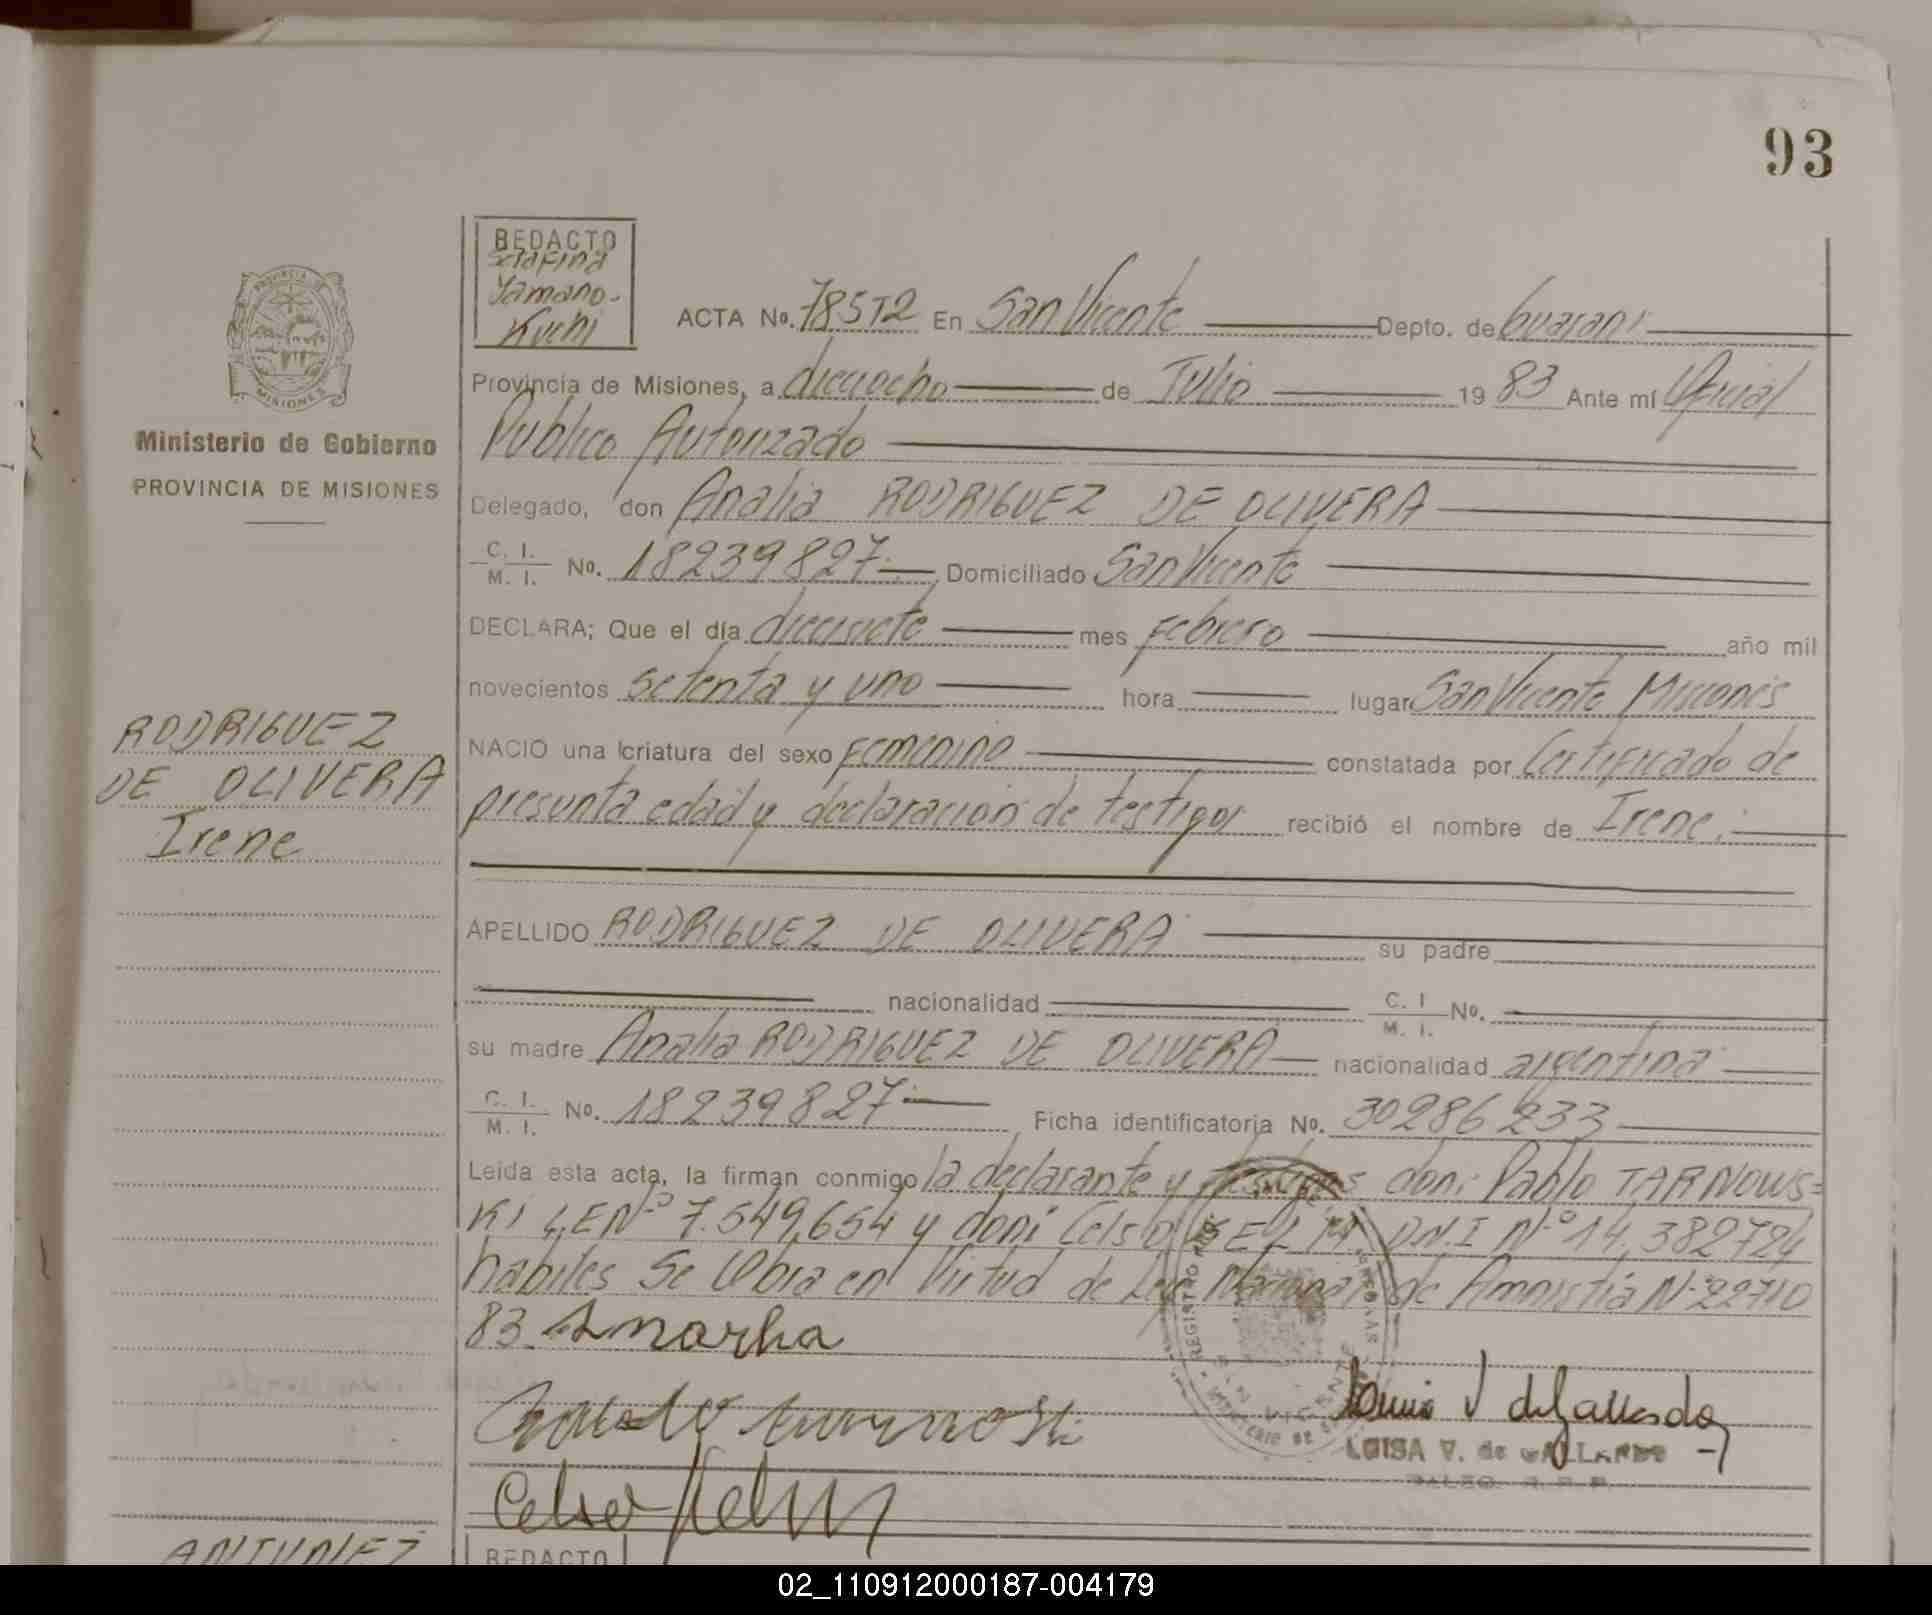 93
REDACTO
Serafina
Yamano-
Kuchi
ACTA No. 78572 En San Vicente Depto. de Guarani
Provincia de Misiones, a dieciocho de Julio 1983 Ante mí Oficial
Publico Autorizado
Ministerio de Gobierno
PROVINCIA DE MISIONES
Delegado, don Analia RODRIGUEZ DE OLIVERA
C. I. / M. I. No. 18239827 Domiciliado San Vicente
DECLARA; Que el día diecisiete mes Febrero año mil
novecientos setenta y uno hora lugar San Vicente Misiones
RODRIGUEZ
DE OLIVERA
Irene
NACIO una criatura del sexo Femenino constatada por Certificado de
presunta edad y declaracion de testigos recibió el nombre de Irene.
APELLIDO RODRIGUEZ DE OLIVERA su padre
nacionalidad C. I. / M. I. No.
su madre Analia RODRIGUEZ DE OLIVERA nacionalidad argentina
C. I. / M. I. No. 18239827 Ficha identificatoria No. 30286233
Leida esta acta, la firman conmigo la declarante y testigos don: Pablo TARNOWS=
KI L.E Nº 7.549.654 y don: Celso D.N.I Nº 14.382724
habiles Se Obra en Virtud de Ley Nacional de Amnistia Nº 22710
83.
Celso
LUISA V. de GALLARDO
ANTUNEZ
REDACTO
02_110912000187-004179